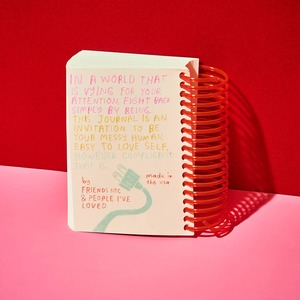 IN A WORLD THAT
IS VYING FOR YOUR
ATTENTION, FIGHT BACK
SIMPLY BY BEING.
THIS JOURNAL IS AN
INVITATION TO BE
YOUR MESSY HUMAN,
EASY TO LOVE SELF,
HOWEVER COMPLICATED
THAT IS.
by
FRIENDS NYC
& PEOPLE I'VE
LOVED
made in
the USA